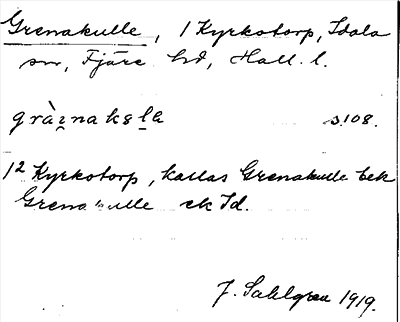 Grenakulle, 1 Kyrkotorp, Idala
sn, Fjäre hd, Hall. l.
gràenakela s.108.
1² Kyrkotorp, kallas Grenakulle bek
Grenakulle ek Id.
J. Sahlgren 1919.